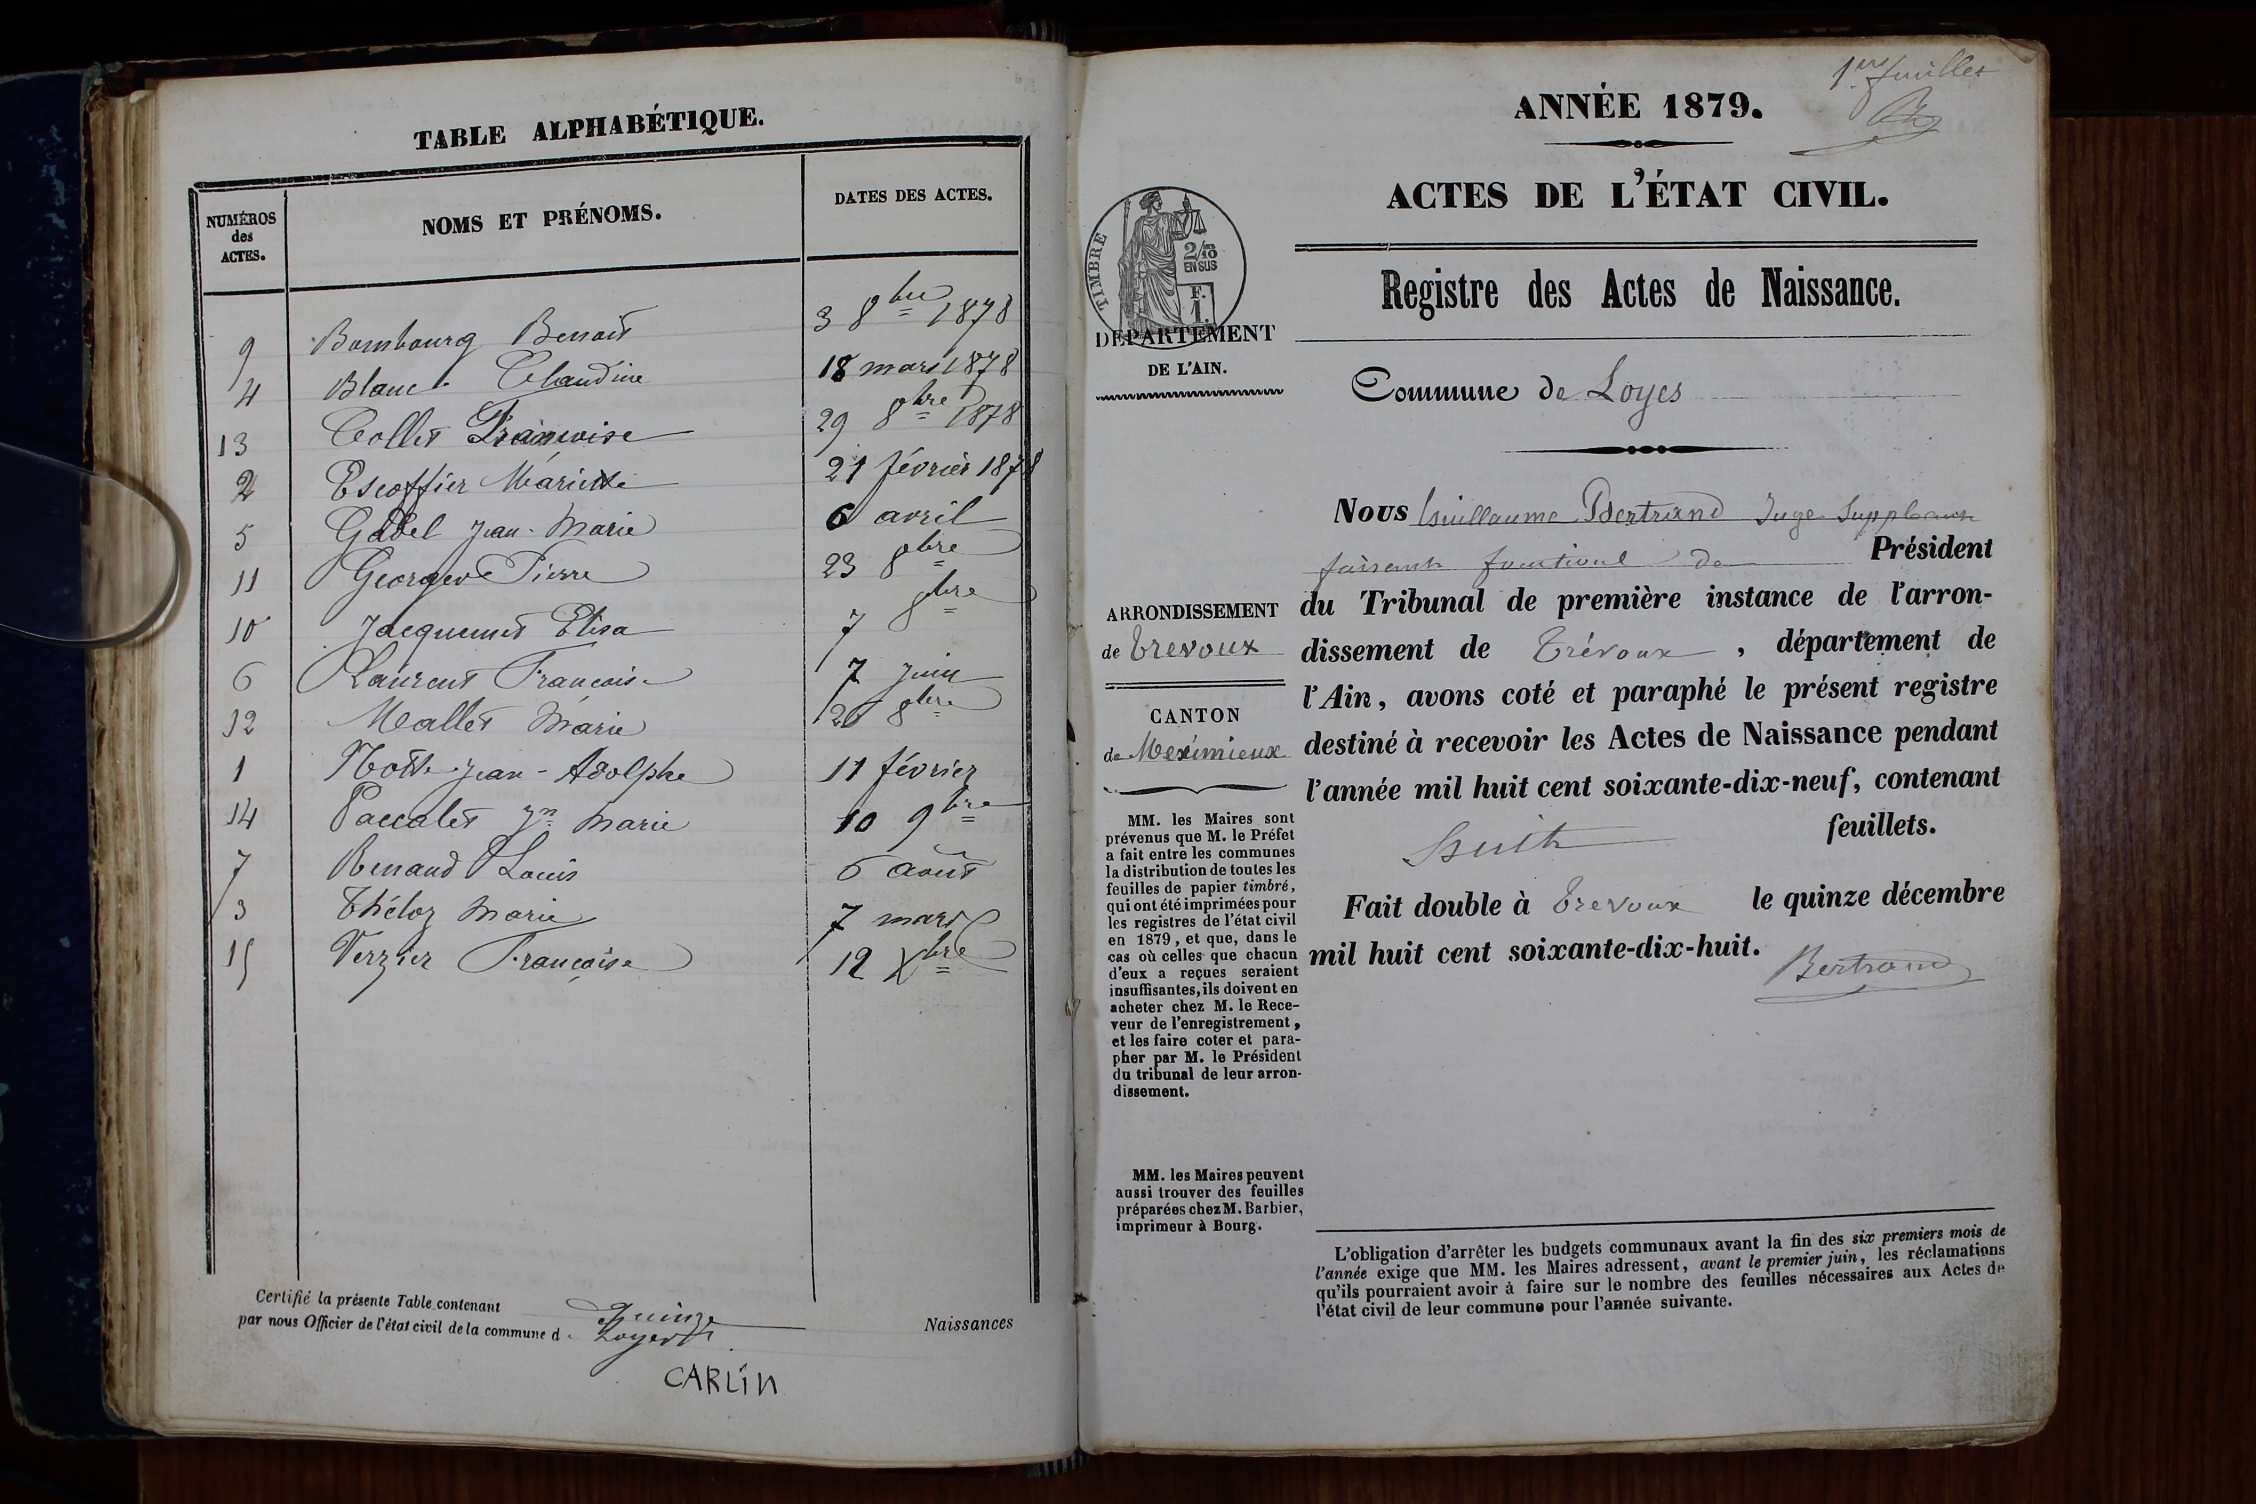 TABLE ALPHABÉTIQUE.
NUMÉROS des ACTES. NOMS ET PRÉNOMS. DATES DES ACTES.
9 Bombourg Benoit 3 8bre 1878
4 Blanc Claudine 18 mars 1878
13 Collet Françoise 29 8bre 1878
2 Escoffier Mariette 21 février 1878
5 Gabel Jean-Marie 6 avril
11 Georges Pierre 23 8bre
10 Jacquemet Elisa 7 8bre
6 Laurent Françoise 7 juin
12 Mallet Marie 26 8bre
1 Jean-Adolphe 11 février
14 Paccalet Jn Marie 10 9bre
7 Renaud Louis 6 août
3 Théloz Marie 7 mars
15 Verzier Françoise 12 Xbre
Certifié la présente Table contenant Quinze Naissances
par nous Officier de l'état civil de la commune d Loyes
CARLIN
1er feuillet
ANNÉE 1879.
ACTES DE L'ÉTAT CIVIL.
TIMBRE
2/10
EN SUS
F.
1.
DÉPARTEMENT
DE L'AIN.
Registre des Actes de Naissance.
Commune de Loyes
Nous Guillaume Bertrand Juge Suppléant
faisant fonctions de Président
du Tribunal de première instance de l'arron-
dissement de Trévoux, département de
l'Ain, avons coté et paraphé le présent registre
destiné à recevoir les Actes de Naissance pendant
l'année mil huit cent soixante-dix-neuf, contenant
huit feuillets.
Fait double à Trevoux le quinze décembre
mil huit cent soixante-dix-huit.
Bertrand
ARRONDISSEMENT
de Trevoux
CANTON
de Meximieux
MM. les Maires sont
prévenus que M. le Préfet
a fait entre les communes
la distribution de toutes les
feuilles de papier timbré,
qui ont été imprimées pour
les registres de l'état civil
en 1879, et que, dans le
cas où celles que chacun
d'eux a reçues seraient
insuffisantes, ils doivent en
acheter chez M. le Rece-
veur de l'enregistrement,
et les faire coter et para-
pher par M. le Président
du tribunal de leur arron-
dissement.
MM. les Maires peuvent
aussi trouver des feuilles
préparées chez M. Barbier,
imprimeur à Bourg.
L'obligation d'arrêter les budgets communaux avant la fin des six premiers mois de
l'année exige que MM. les Maires adressent, avant le premier juin, les réclamations
qu'ils pourraient avoir à faire sur le nombre des feuilles nécessaires aux Actes de
l'état civil de leur commune pour l'année suivante.